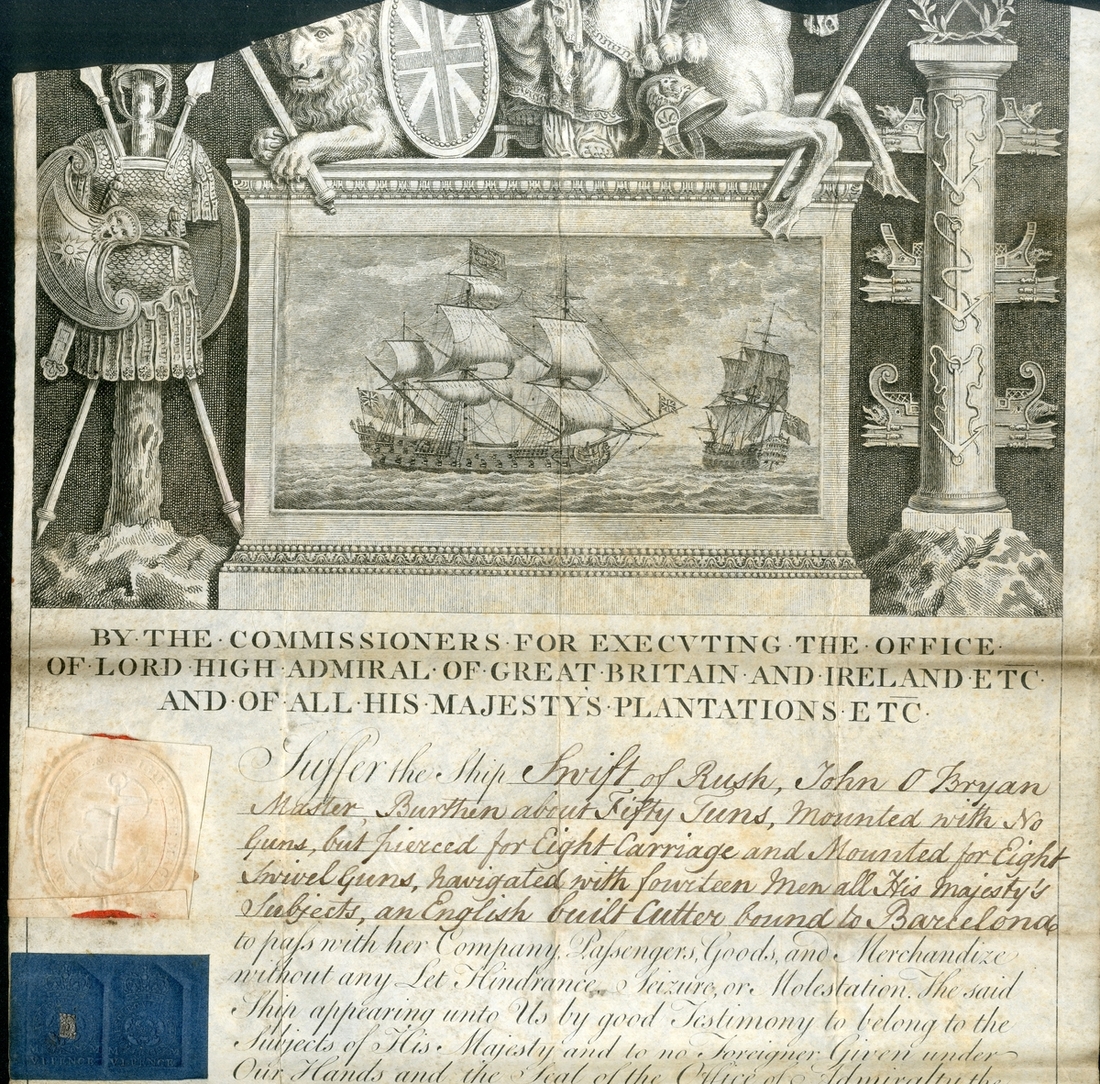 BY·THE·COMMISSIONERS·FOR EXECVTING·THE·OFFICE·
OF·LORD·HIGH·ADMIRAL·OF·GREAT·BRITAIN·AND·IRELAND·ETC·
AND·OF·ALL·HIS·MAJESTY'S·PLANTATIONS·ETC·
Suffer the Ship Swift of Rush, John O Bryan
Master, Burthen about Fifty Tuns, Mounted with No
Guns, but pierced for Eight Carriage and Mounted for Eight
Swivel Guns, navigated with fourteen Men all His Majesty's
Subjects, an English built Cutter bound to Barcelona
to pass with her Company, Passengers, Goods, and Merchandize
without any Let Hindrance, Seizure, or Molestation. The said
Ship appearing unto Us by good Testimony to belong to the
Subjects of His Majesty and to no Foreigner Given under
Our Hands and the Seal of the Office of Admiralty the